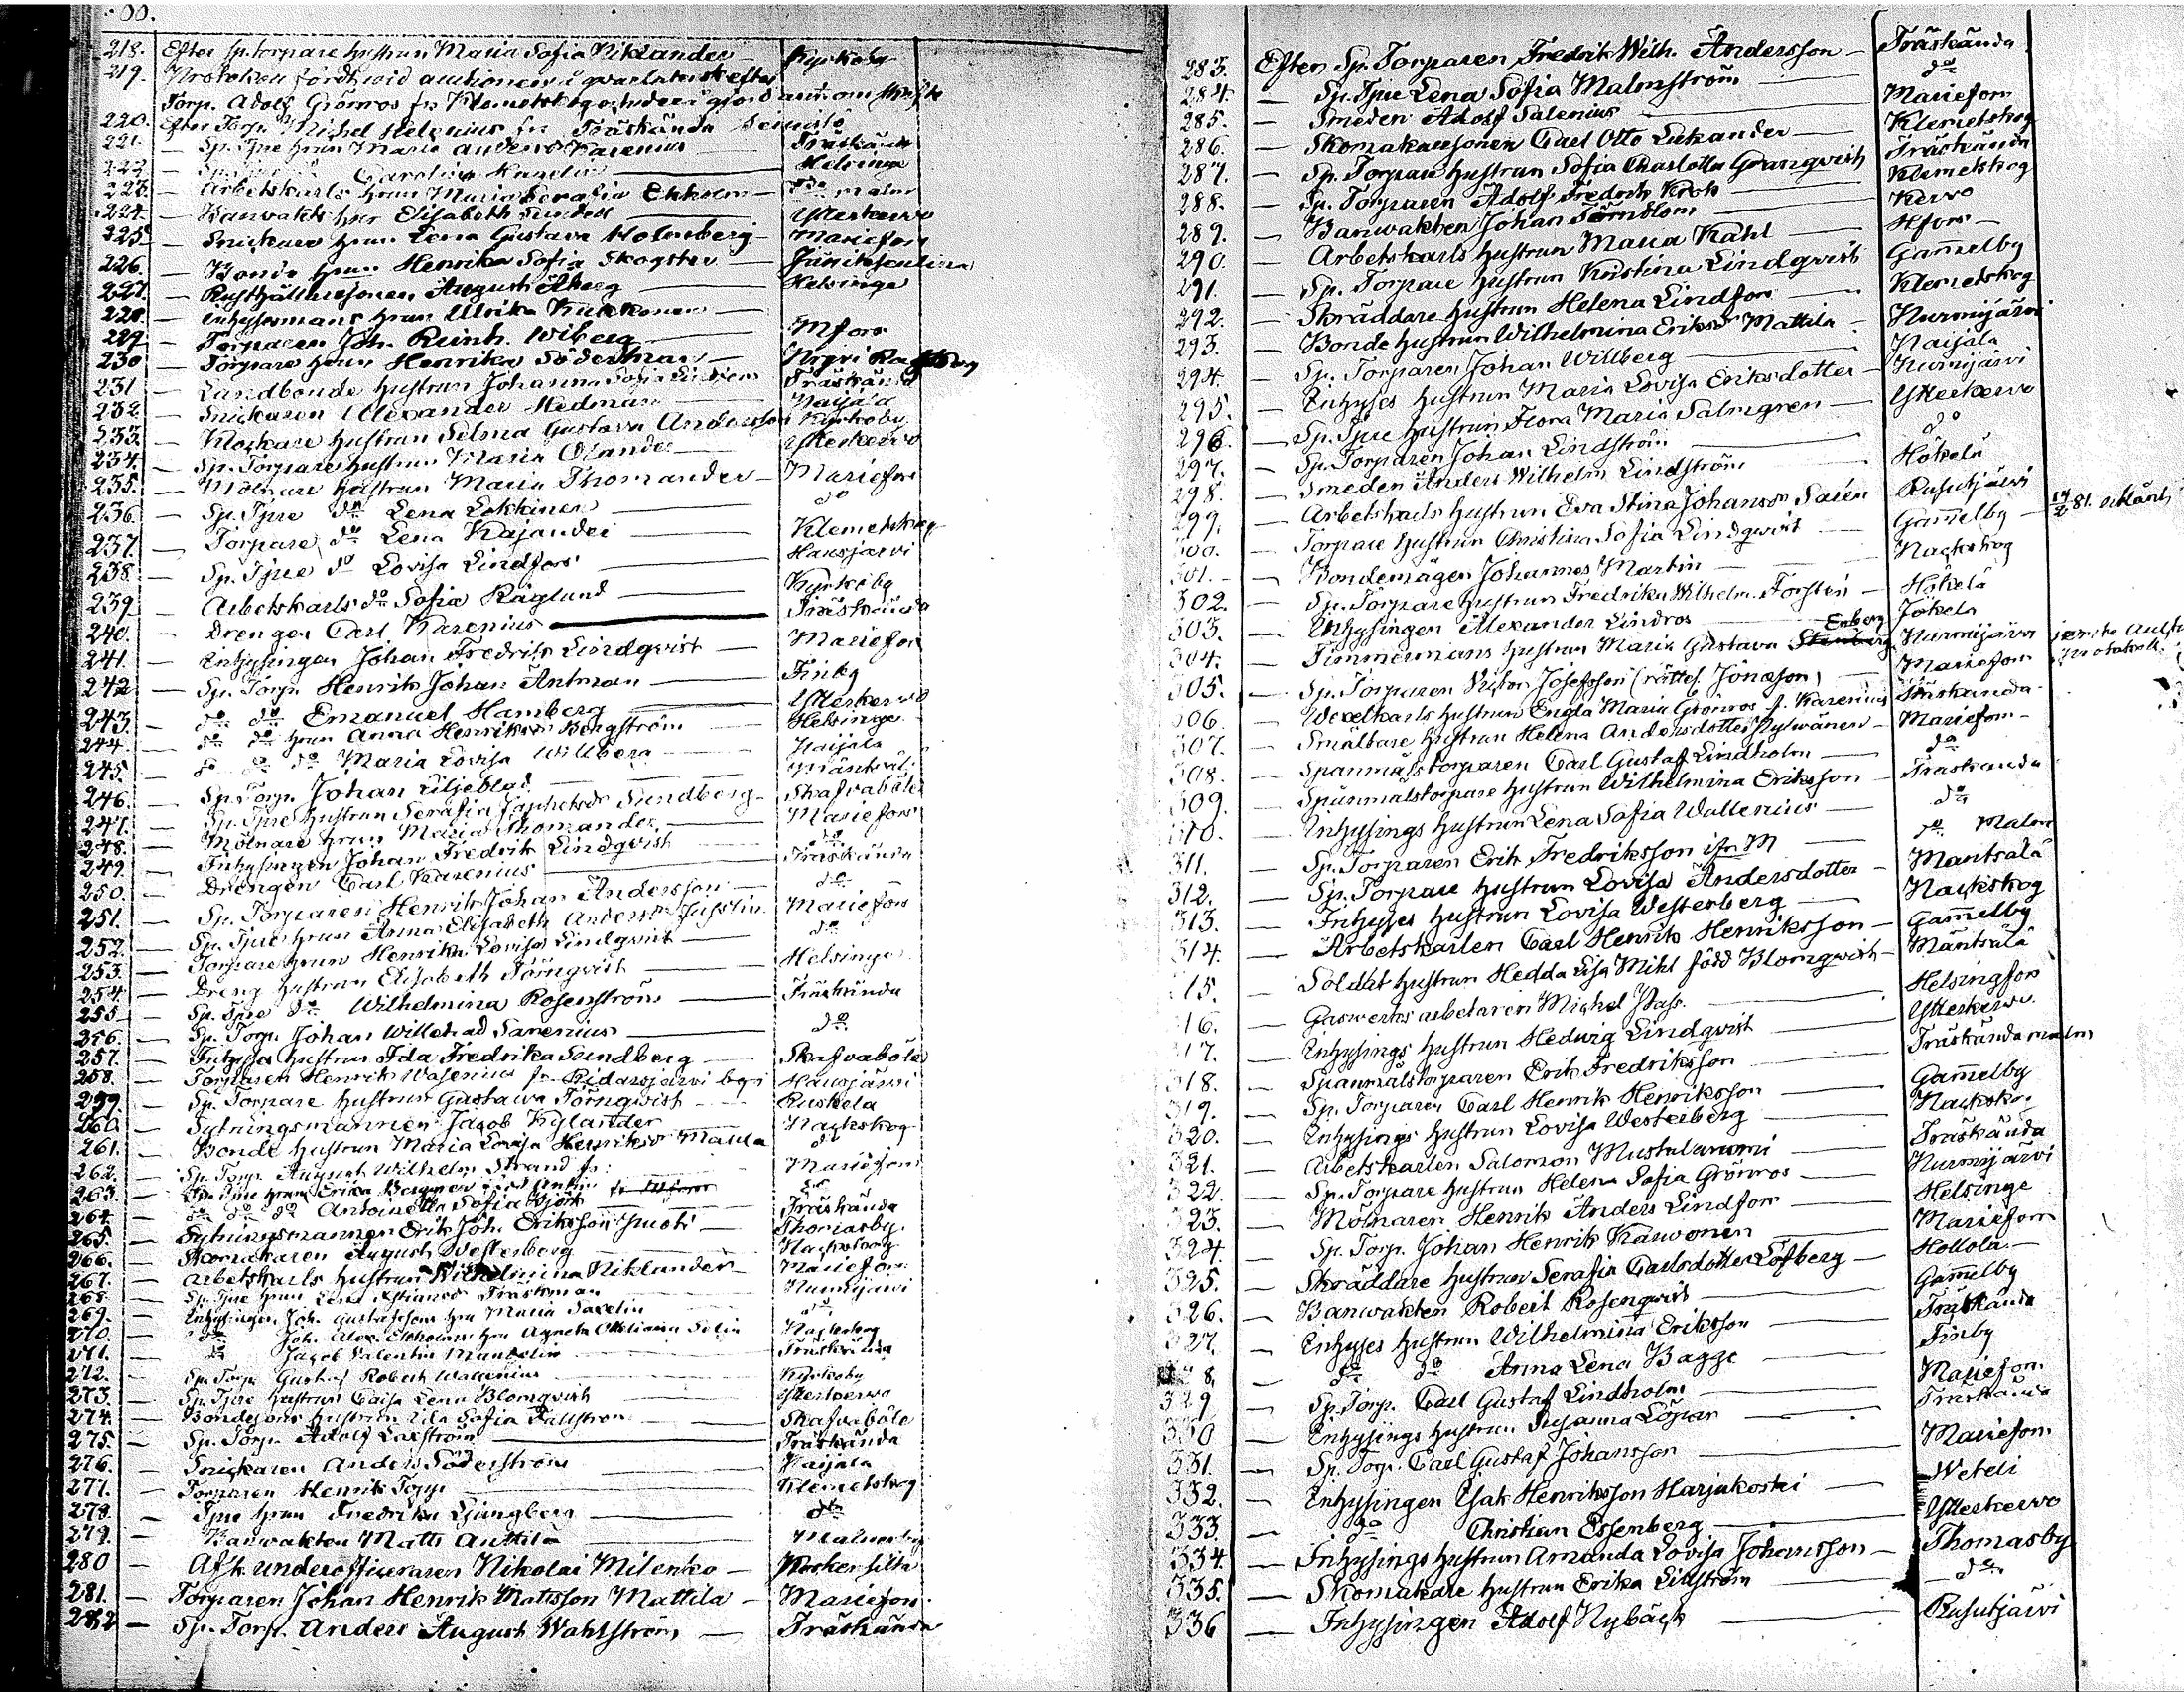 218. Efter Sp. torpare hustrun Maria Sofia Niklander — Kyrkoby
219. Protokoll fördt wid auktionen i qvarlåtenskap efter
Torp. Adolf Grönros fr. Klemetskog
220. Efter Torp. Michel Helenius fr. Träskända
221. — Sp. Tjue hrun Maria Karenius — Träskända
222. — Carolina — Helsinge
223. — Arbetskarls hrun Maria Serafia Ekholm — do malm
224. — Banvakts hru Elisabeth Sundell — Ytterkerwo
225. — Snickare hrun Lena Gustava Holmberg — Mariefors
226. — Bonde hrun Henrika Sofia Skogster
227. — Rusthållaresonen August Åberg — Helsinge
228. — Inhysesmans hrun Ulrika Kukkonen
229. — Torparen Joh. Reinh. Wiberg — Mfors
230 — Torpare hrun Henrika Söderman
231 — Landbonde hustrun Johanna Sofia — Träskända
232. — Snickaren Alexander Hedman — Paijala
233. — Klockare hustrun Selma Gustava Andersson — Kyrkoby
234. — Sp. Torpare hustrun Maria Olander — Ytterkerwo
235. — Mölnare hustrun Maria Thomander — Mariefors
236. — Sp. Tjue do Lena Lokkinen — do
237. — Torpare do Lena Kajander — Klemetskog
238 — Sp. Tjue do Lovisa Lindfors — Hausjärvi
239 — Arbetskarls do Sofia Råglund — Kyrkoby
240. — Drengen Carl Karenius — Träskända
241. — Inhysingen Johan Fredrik Lindqvist — Mariefors
242 — Sp. Torp. Henrik Johan Antman — Finby
243. — do do Emanuel Hamberg — Ytterkerwo
244 — do do hrun Anna Henriksdr Bergström — Helsinge
245. — do do do Maria Lovisa Willberg — Paijala
246. — Sp. Torp. Johan Liljeblad
247. — Sp. Tjue hustrun Serafia Japhetsdr Sundberg — Skafvaböle
248. — Mölnare hrun Maria Thomander — Mariefors
249. — Inhysingen Johan Fredrik Lindqvist — do
250. — Drengen Carl Karenius — Träskända
251. — Sp. Torparen Henrik Johan Andersson — do
252. — Sp. Tjue hrun Anna Elisabeth Andersdr Jusslin — Mariefors
253. — Torpare hrun Henrika Lovisa Lindqvist — do
254. — Dreng hustrun Elisabeth Törnqvist — Helsinge
255 — Sp. Tjue do Wilhelmina Rosenström — Träskända
256. — Sp. Torp. Johan Willehad Sarenius — do
257. — Inhyses hustrun Ida Fredrika Sundberg — Skafvaböle
258. — Torparen Henrik Wasenius fr. Ridasjärvi by i Hausjärvi
259. — Sp. Torpare hustrun Gustava Törnqvist — Ruskela
260 — Sytningsmannen Jacob Kylander — Nackskog
261. — Bonde hustrun Maria Lovisa Henriksdr — do
262. — Sp. Torp. August Wilhelm Strand — Mariefors
263. — Sp. Tjue hrun Erika — do
264. — do do do Antoinetta Sofia Björk — Träskända
265. — Sytningsmannen Erik Joh. Eriksson — Thomasby
266. — Skomakaren August Westerberg — Nackskog
267. — Arbetskarls hustrun Wilhelmina Niklander — Mariefors
268. — Sp. Tjue hrun Lena Träskman — Nurmijärvi
269. — Inhysingen Joh. Gustafssons hru Maria — do
270. — do Joh. Alex. Ekholms hru Agneta — Nackskog
271 — do Jacob Valentin Mandelin — Träskända
272. — Sp. Torp. Gustaf Robert Wallenius — Kyrkoby
273. — Sp. Tjue hustrun Caisa Lena Blomqvist — Ytterkerwo
274. — Bondesons hustrun Ida Sofia Fallström — Skafvaböle
275. — Sp. Torp. Adolf Laxström — Träskända
276. — Snickaren Anders Söderström — Paijala
277. — Torparen Henrik Topp — Klemetskog
278. — Tjue hrun Fredrika Ljungberg — do
279. — Banwakten Matts Anttila — Malmerby
280 — Afsk. underofficeraren Nikolai Milenko — Korkensilta
281. — Torparen Johan Henrik Mattsson Mattila — Mariefors
282 — Sp. Torp. Anders August Wahlström — Träskända
283. Efter Sp. Torparen Fredrik Wilh. Andersson — Träskända
284. — Sp. Tjue Lena Sofia Malmström — do
285. — Smeden Adolf Salenius — Mariefors
286. — Skomakaresonen Carl Otto Lukander — Klemetskog
287. — Sp. Torpare hustrun Sofia Charlotta Granqvist — Träskända
288. — Sp. Torparen Adolf Fredrik Krok — Klemetskog
289. — Banwakten Johan Törnblom — Kerwo
290. — Arbetskarls hustrun Maria Kahl — Hfors
291. — Sp. Torpare hustrun Kristina Lindqvist — Gammelby
292. — Skräddare hustrun Helena Lindfors — Klemetskog
293. — Bonde hustrun Wilhelmina Eriksdr Mattila — Nurmijärvi
294. — Sp. Torparen Johan Willberg — Paijala
295. — Inhyses hustrun Maria Lovisa Eriksdotter — Nurmijärvi
296. — Sp. Tjue hustrun Flora Maria Salmgren — Ytterkerwo
297. — Sp. Torparen Johan Lindström — do
298. — Smeden Anders Wilhelm Lindström — Hökelä
299. — Arbetskarls hustrun Eva Stina Johansdr Salen — Rusutjärvi
300. — Torpare hustrun Christina Sofia Lindqvist — Gammelby — 14/2 81.
301. — Bondemågen Johannes Martin — Nackskog
302. — Sp. Torpare hustrun Fredrika Wilhelm. Forsten — Hökelä
303. — Inhysingen Alexander Lindros — Jokela
Enberg
304. — Timmermans hustrun Maria Gustava Stenberg — Nurmijärvi
305. — Sp. Torparen Victor Josefsson (rättel. Jönsson) — Mariefors
306. — Wexelkarls hustrun Engla Maria Grönroos f. Karenius — Träskända
307. — Smältare hustrun Helena Andersdotter Pylwänen — Mariefors
308. — Spanmålstorparen Carl Gustaf Lindholm — do
309. — Spanmålstorpare hustrun Wilhelmina Eriksson — Träskända
310. — Inhysings hustrun Lena Sofia Wallenius — do
311. — Sp. Torparen Erik Fredriksson ifr M — do Malm
312. — Sp. Torpare hustrun Lovisa Andersdotter — Mäntsälä
313. — Inhyses hustrun Lovisa Westerberg — Nackskog
314. — Arbetskarlen Carl Henrik Henriksson — Gammelby
315. — Soldat hustrun Hedda Lisa Mihl född Blomqwist — Mäntsälä
316. — Gaswerks arbetaren Michel — Helsingfors
317. — Inhysings hustrun Hedwig Lindqvist — Ytterkerwo
318. — Spanmålstorparen Erik Fredriksson — Träskända malm
319. — Sp. Torparen Carl Henrik Henriksson — Gammelby
320. — Inhysings hustrun Lovisa Westerberg — Nackskog
321. — Arbetskarlen Salomon Mustalammi — Träskända
322. — Sp. Torpare hustrun Helena Sofia Grönros — Nurmijärvi
323. — Mölnaren Henrik Anders Lindfors — Helsinge
324. — Sp. Torp. Johan Henrik Karwonen — Mariefors
325. — Skräddare hustrun Serafia Carlsdotter Löfberg — Hollola
326. — Banwakten Robert Rosenqvist — Gammelby
327. — Inhyses hustrun Wilhelmina Eriksson — Träskända
328 — do do Anna Lena Bagge — Finby
329 — Sp. Torp. Carl Gustaf Lindholm — Mariefors
330 — Inhysings hustrun Susanna Löpar — Träskända
331. — Sp. Torp. Carl Gustaf Johansson — Mariefors
332. — Inhysingen Isak Henriksson Harjukoski — Weteli
333. — do Christian Essenberg — Ytterkerwo
334. — Inhysings hustrun Amanda Lovisa Johansson — Thomasby
335. — Skomakare hustrun Erika Lidström — do
336 — Inhysingen Adolf Nybäck — Rusutjärvi